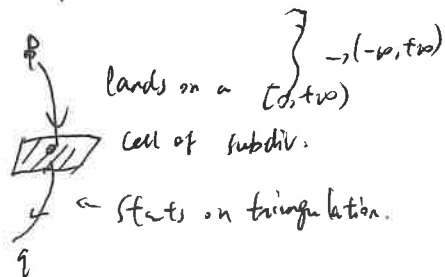 p
→ (-∞, +∞)
lands on a [0, +∞)
cell of subdiv.
← starts on triangulation.
q